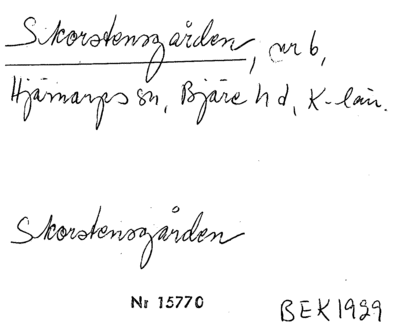 Skorstensgården, nr 6,
Hjärnarps sn, Bjäre hd, K-län.
Skorstensgården
Nr 15770
BEK 1929